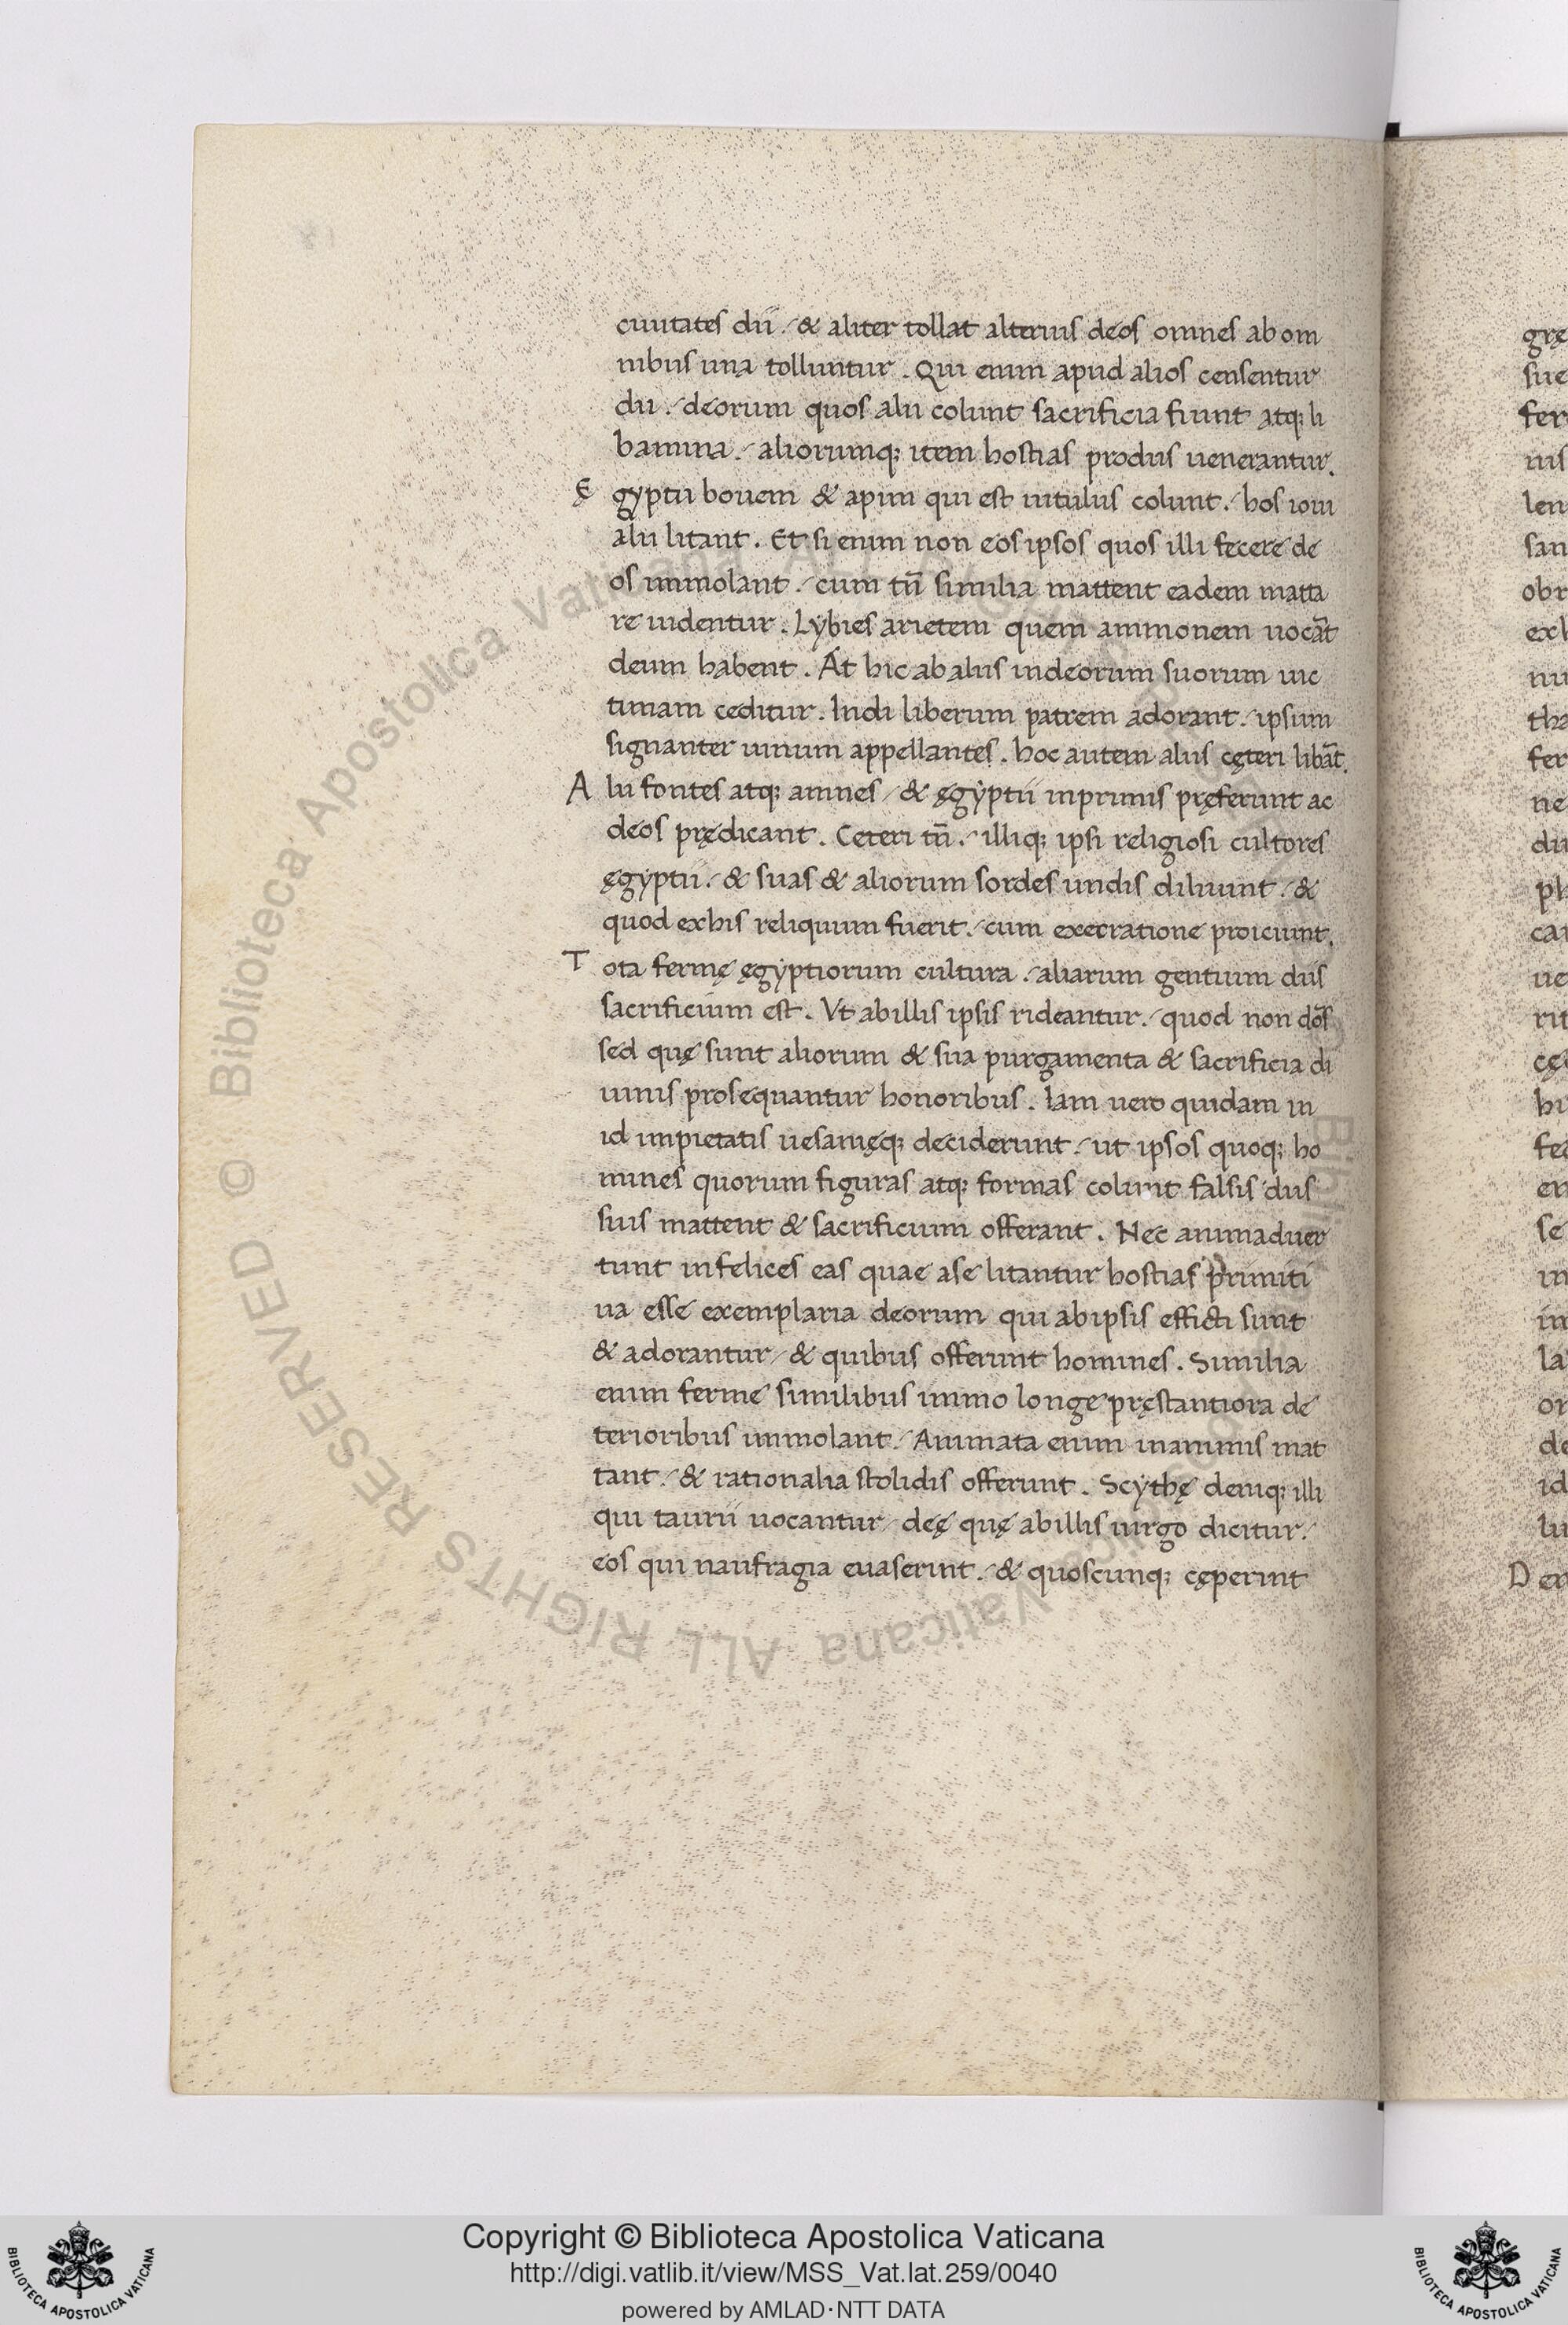 ciuitates dii. & aliter tollat alterius deos omnes ab om
nibus una tolluntur. Qui enim apud alios censentur
dii. deorum quos alii colunt sacrificia fiunt atq; li
bamina. aliorumq; item hostias prodiis uenerantur.
Ę gyptii bouem & apim qui est uitulus colunt. hos ioui
alii litant. Et si enim non eos ipsos quos illi fecere de
os immolant. cum tn̄ similia mattent eadem matta
re uidentur. Lybies arietem quem ammonem uocāt
deum habent. At hic ab aliis indeorum suorum uic
timam ceditur. Indi liberum patrem adorant. ipsum
signanter uinum appellantes. hoc autem aliis cęteri libāt.
A lii fontes atq; amnes / & ęgyptii inprimis pręferunt ac
deos prędicant. Ceteri tn̄. illiq; ipsi religiosi cultores
ęgyptii. & suas & aliorum sordes undis diluunt. &
quod exhis reliquum fuerit. cum execratione proiciunt.
T ota fermę ęgyptiorum cultura. aliarum gentium diis
sacrificium est. Vt abillis ipsis rideantur. quod non dōs
sed quę sunt aliorum & sua purgamenta & sacrificia di
uinis prosequantur honoribus. Iam uero quidam in
id impietatis uesanięq; deciderunt. ut ipsos quoq; ho
mines quorum figuras atq; formas colunt falsis diis
suis mattent & sacrificium offerant. Nec animaduer
tunt infelices eas quae ase litantur hostias primiti
ua esse exemplaria deorum qui abipsis efficti sunt
& adorantur / & quibus offerunt homines. Similia
enim ferme similibus immo longe pręstantiora de
terioribus immolant. Animata enim inanimis mat
tant. & rationalia stolidis offerunt. Scythę deniq; illi
qui taurii uocantur / deę quę abillis uirgo dicitur.
eos qui naufragia euaserint. & quoscunq; cęperint
grę
sue
fer
uis
len
san
obr
exh
nu
tha
fer
ne
du
ph
car
ue
rit
cęt
hi
fec
en
se
in
im
la
or
de
id
lu
D en
© Biblioteca Apostolica Vaticana ALL RIGHTS RESERVED
Copyright © Biblioteca Apostolica Vaticana
http://digi.vatlib.it/view/MSS_Vat.lat.259/0040
powered by AMLAD·NTT DATA
BIBLIOTECA APOSTOLICA VATICANA
BIBLIOTECA APOSTOLICA VATICANA